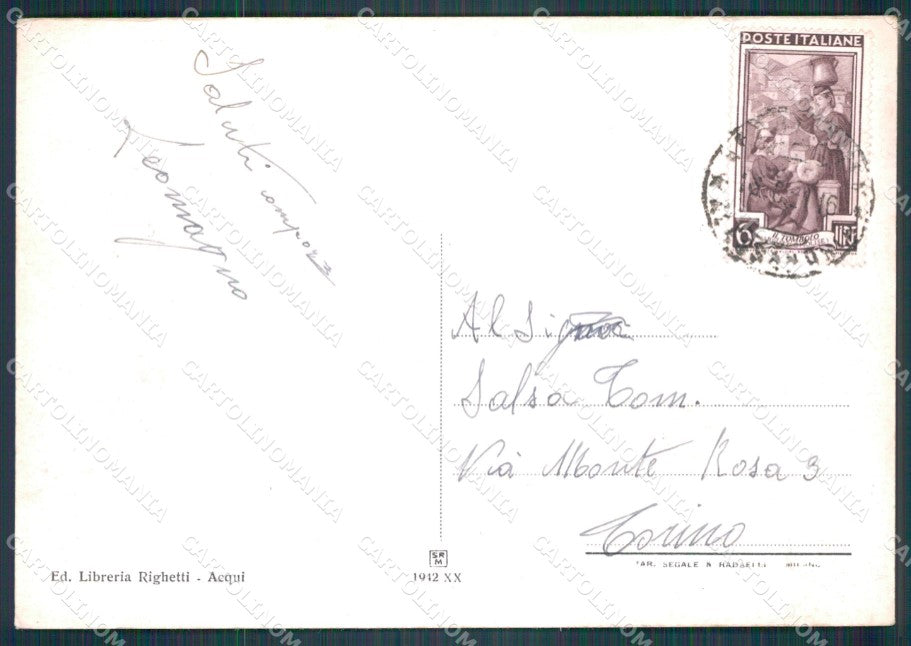 POSTE ITALIANE
6 LIRE
IL TOMBOLO
Saluti
Leomagno
Al Signor
Salsa Tom.
Via Monte Rosa 3
Torino
SR
M
Ed. Libreria Righetti - Acqui
1942 XX
SEGALE & RADAELLI MILANO
CARTOLINOMANIA